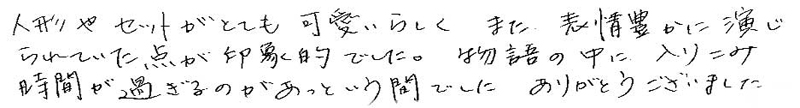 人形やセットがとても可愛いらしく また、表情豊かに演じ
られていた点が印象的でした。物語の中に入りこみ
時間が過ぎるのがあっという間でした ありがとうございました